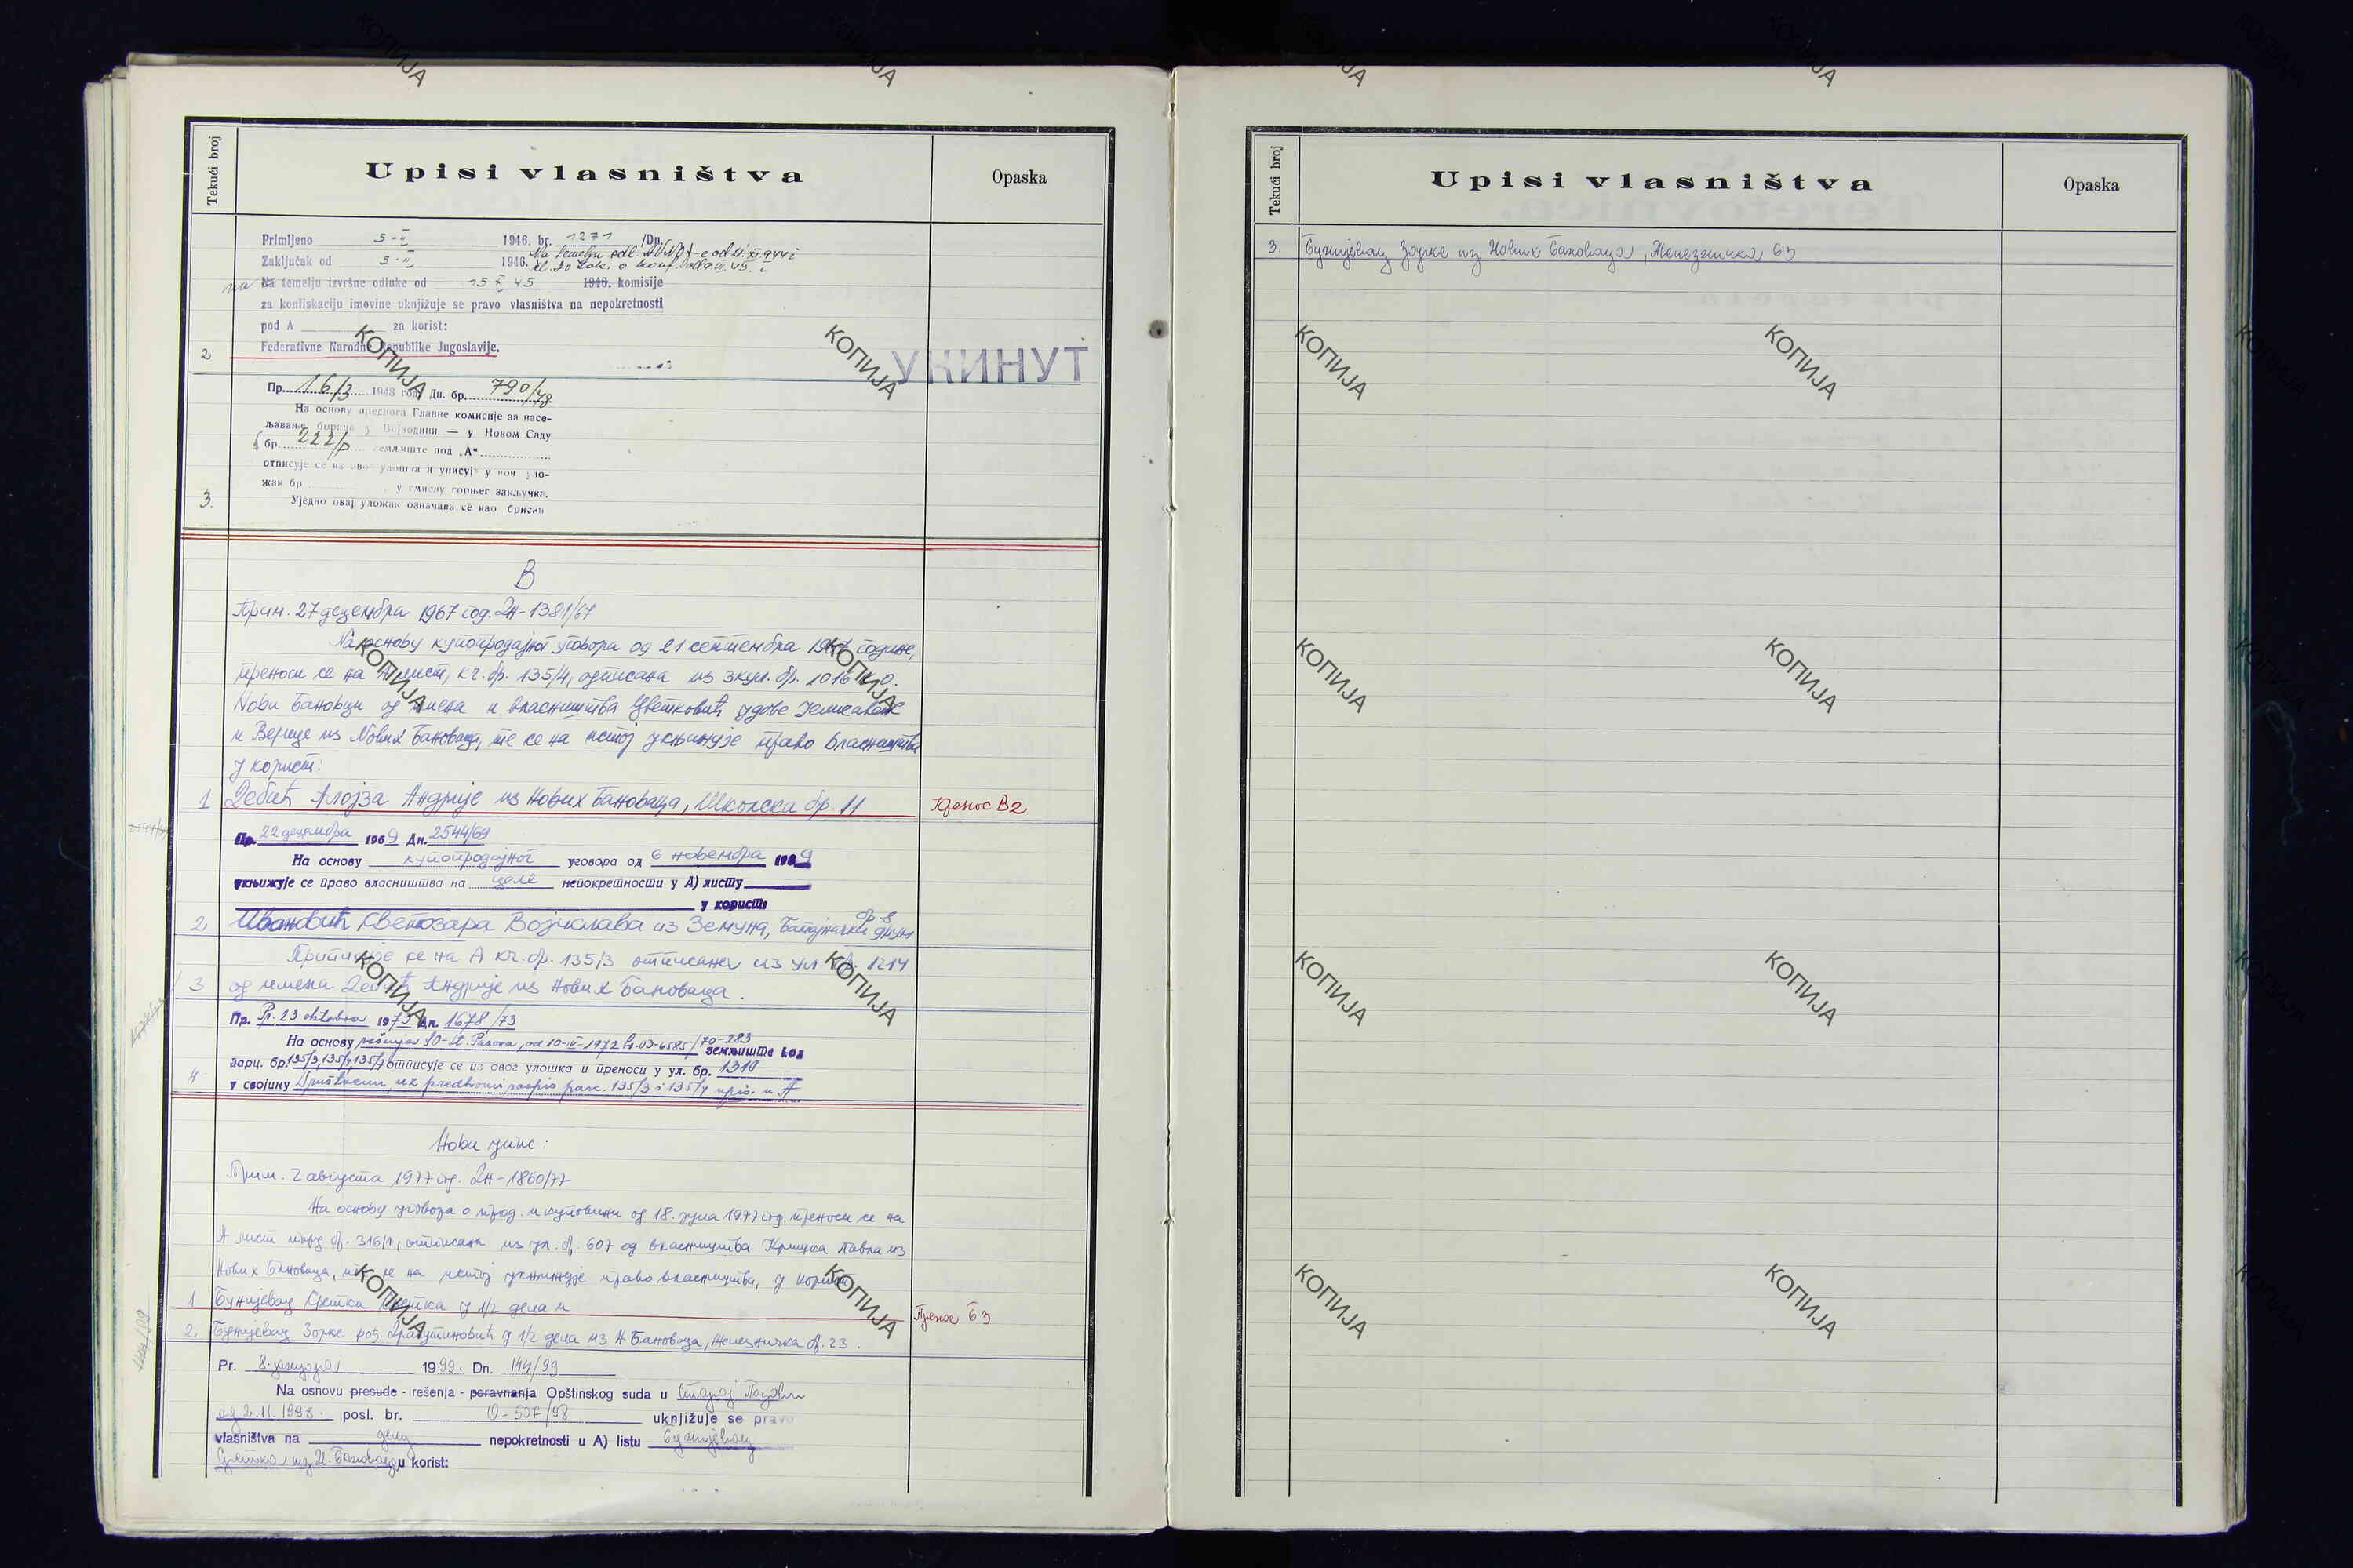 Tekući broj
Upisi vlasništva
Opaska
Primljeno 5-II 1946. br. 1271 /Dn.
Zaključak od 5-II 1946.
Na temelju izvršne odluke od 15 45 1946. komisije
za konfiskaciju imovine uknjižuje se pravo vlasništva na nepokretnosti
pod A za korist:
2 Federativne Narodne Republike Jugoslavije.
УКИНУТ
Пр. 16/3 1948 год. Дн. бр. 790/48
На основу предлога Главне комисије за насе-
љавање бораца у Војводини — у Новом Саду
бр. 222/р земљиште под „А“
отписује се из овог улошка и уписује у нов уло-
жак бр у смислу горњег закључка.
3. Уједно овај уложак означава се као брисан
B
Прим. 27 децембра 1967 год. Дн-1381/67
На основу купопродајног уговора од 21 септембра 1967 године,
преноси се на А лист, кч. бр. 135/4, отписана из зкул. бр. 1016 к.о.
Нови Бановци од имена и власништва Цветковић удове
и Верице из Нових Бановаца, те се на истој укњижује право власништва
у корист:
1 Дебић Алојза Андрије из Нових Бановаца, Школска бр. 11
Пренос В2
Пр. 22 децембра 1969 Дн. 2544/69
На основу купопродајног уговора од 6 новембра 1969
укњижује се право власништва на целе непокретности у А) листу
у корист
2 Ивановић Светозара Војислава из Земуна, Батајнички друм бр. 8
Приписује се на А кч. бр. 135/3 отписана из ул. бр. 1214
3 од имена Дебић Андрије из Нових Бановаца.
Пр. Pr. 23 oktobra 1973 Дн. 1678/73
На основу rešenja SO-St. Pazova, od 10-IV-1972 br. 03-6585/70-283 земљиште код
парц. бр. 135/3, 135/4, 135/7 отписује се из овог улошка и преноси у ул. бр. 1310
4 у својину Društvenu, uz predhodni raspis parc. 135/3 i 135/4 upis. u A.
Нови упис:
Прим. 2 августа 1977 год. Дн-1860/77
На основу уговора о прод. и куповини од 18. јула 1977 год. преноси се на
А лист парц. бр. 316/1, отписана из ул. бр. 607 од власништва Павла из
Нових Бановаца, и се на истој укњижује право власништва, у корист
1 Бунијевац Сретка у 1/2 дела и
Пренос Б3
2 Бунијевац Зорке рођ. Драгутиновић у 1/2 дела из Н. Бановаца, Железничка бр. 23.
Pr. 8. јануара 1999. Dn. 144/99
Na osnovu presude - rešenja - poravnanja Opštinskog suda u Старој Пазови
од 2.11.1998. posl. br. О-507/98 uknjižuje se pravo
vlasništva na делу nepokretnosti u A) listu Бунијевац
Сретка из Н. Бановаца u korist:
Tekući broj
Upisi vlasništva
Opaska
3. Бунијевац Зорке из Нових Бановаца, Железничка 63
КОПИЈА